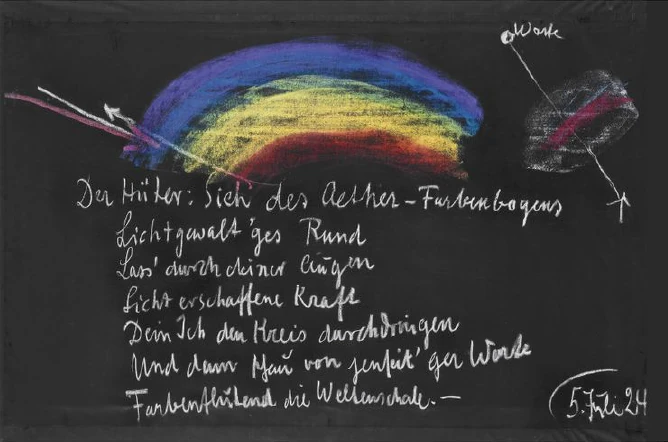 Warte
Der Hüter: Sieh des Aether-Farbenbogens
Lichtgewalt'ges Rund
Lass' durch deiner Augen
Lichterschaffene Kraft
Dein Ich den Kreis durchdringen
Und dann schau von jenseit'ger Warte
Farbenflutend die Weltenschale.—
5. Juli 24